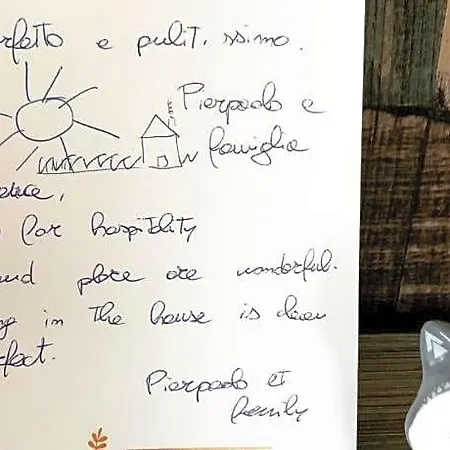 rfetto e pulitissimo.
Pierpaolo e
famiglia
for hospitlity
and place are wonderful.
in the house is clean
fect.
Pierpaolo et
family